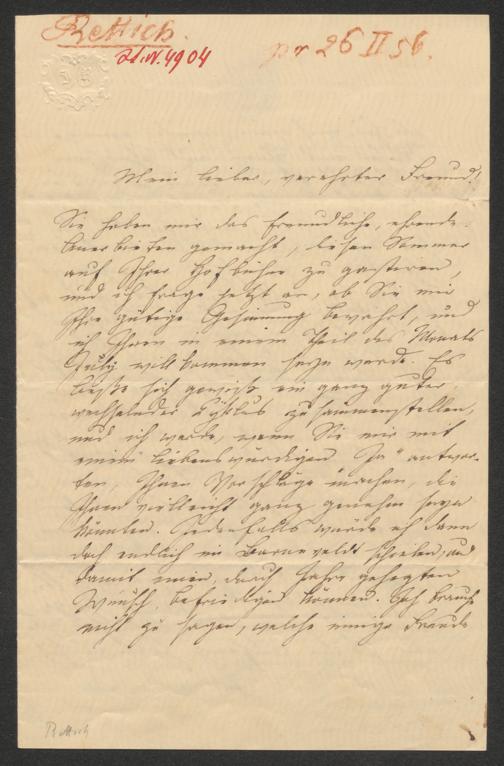 Rettich.
Id. N. 4904
pr 26 II 56.
Mein lieber, verehrter Freund!
Sie haben mir das freundliche, ehrende
Anerbieten gemacht, diesen Sommer
auf Ihrer Hofbühne zu gastiren,
und ich frage jetzt an, ob Sie mir
Ihre gütige Gesinnung bewahrt, und
ich Ihnen in einem Theil des Monats
July willkommen seyn werde. Es
ließe sich gewiß ein ganz guter,
wechselnder Cyklus zusammenstellen,
und ich werde, wenn Sie mir mit
einem liebenswürdigen „Ja“ antwor-
ten, Ihnen Vorschläge machen, die
Ihnen vielleicht ganz genehm seyn
könnten. Jedenfalls würde ich dann
doch endlich in Barneveldt spielen, und
damit einen, durch Jahre gehegten
Wunsch, befriedigen können. Ich brauche
nicht zu sagen, welche innige Freude
Rettich